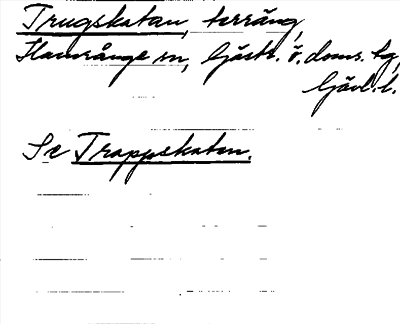 Trugskatan, terräng,
Hamrånge sn, Gästr. ö. doms. tg,
Gävl. l.
Se Trappskaten.